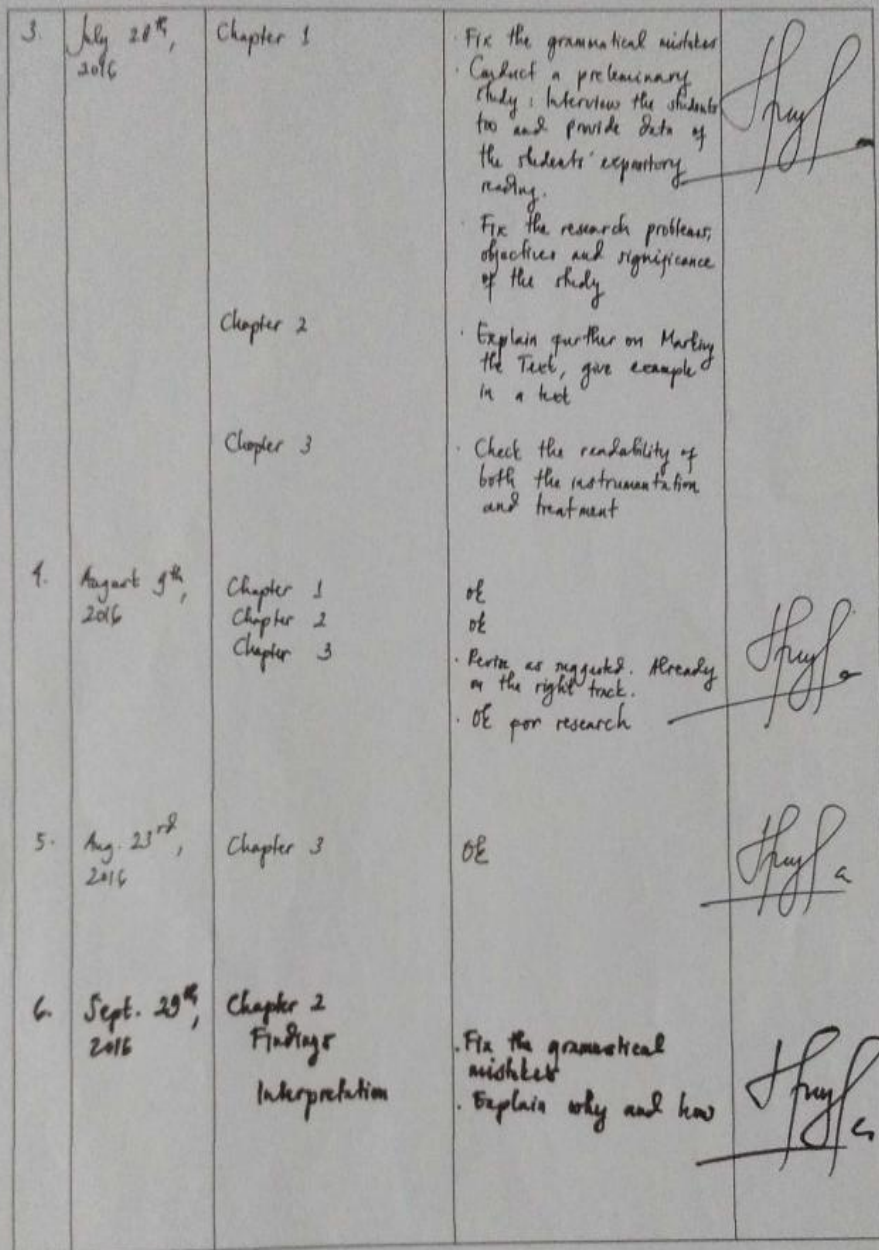 3.
July 28th,
2016
Chapter 1
· Fix the grammatical mistakes
· Conduct a preleminary
study : Interview the students
too and provide data of
the students' expository
reading.
· Fix the research problems,
objectives and significance
of the study
Chapter 2
· Explain further on Marking
the Text, give example
in a text
Chapter 3
· Check the readability of
both the instrumentation
and treatment
4.
August 9th,
2016
Chapter 1
ok
Chapter 2
ok
Chapter 3
· Revise as suggested. Already
on the right track.
· Ok for research
5.
Aug. 23rd,
2016
Chapter 3
Ok
6.
Sept. 29th,
2016
Chapter 2
Findings
· Fix the grammatical
mistakes
Interpretation
· Explain why and how